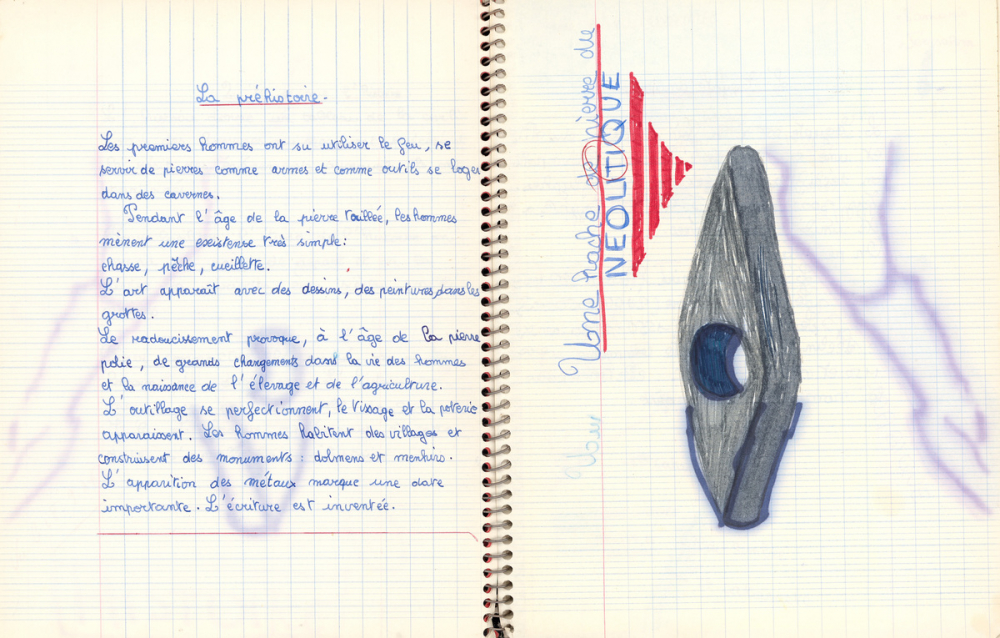 La préhistoire.
Les premiers hommes ont su utiliser le feu, se
servir de pierres comme armes et comme outils se loger
dans des cavernes.
Pendant l'âge de la pierre taillée, les hommes
mènent une existense très simple:
chasse, pêche, cueillette.
L'art apparaît avec des dessins, des peintures, dans les
grottes.
Le radoucissement provoque, à l'âge de la pierre
polie, de grands changements dans la vie des hommes
et la naissance de l'élevage et de l'agriculture.
L'outillage se perfectionnent, le tissage et la poterie
apparaissent. Les hommes habitent des villages et
construisent des monuments : dolmens et menhirs.
L'apparition des métaux marque une date
importante. L'écriture est inventée.
Une hache de pierre du
NEOLITIQUE